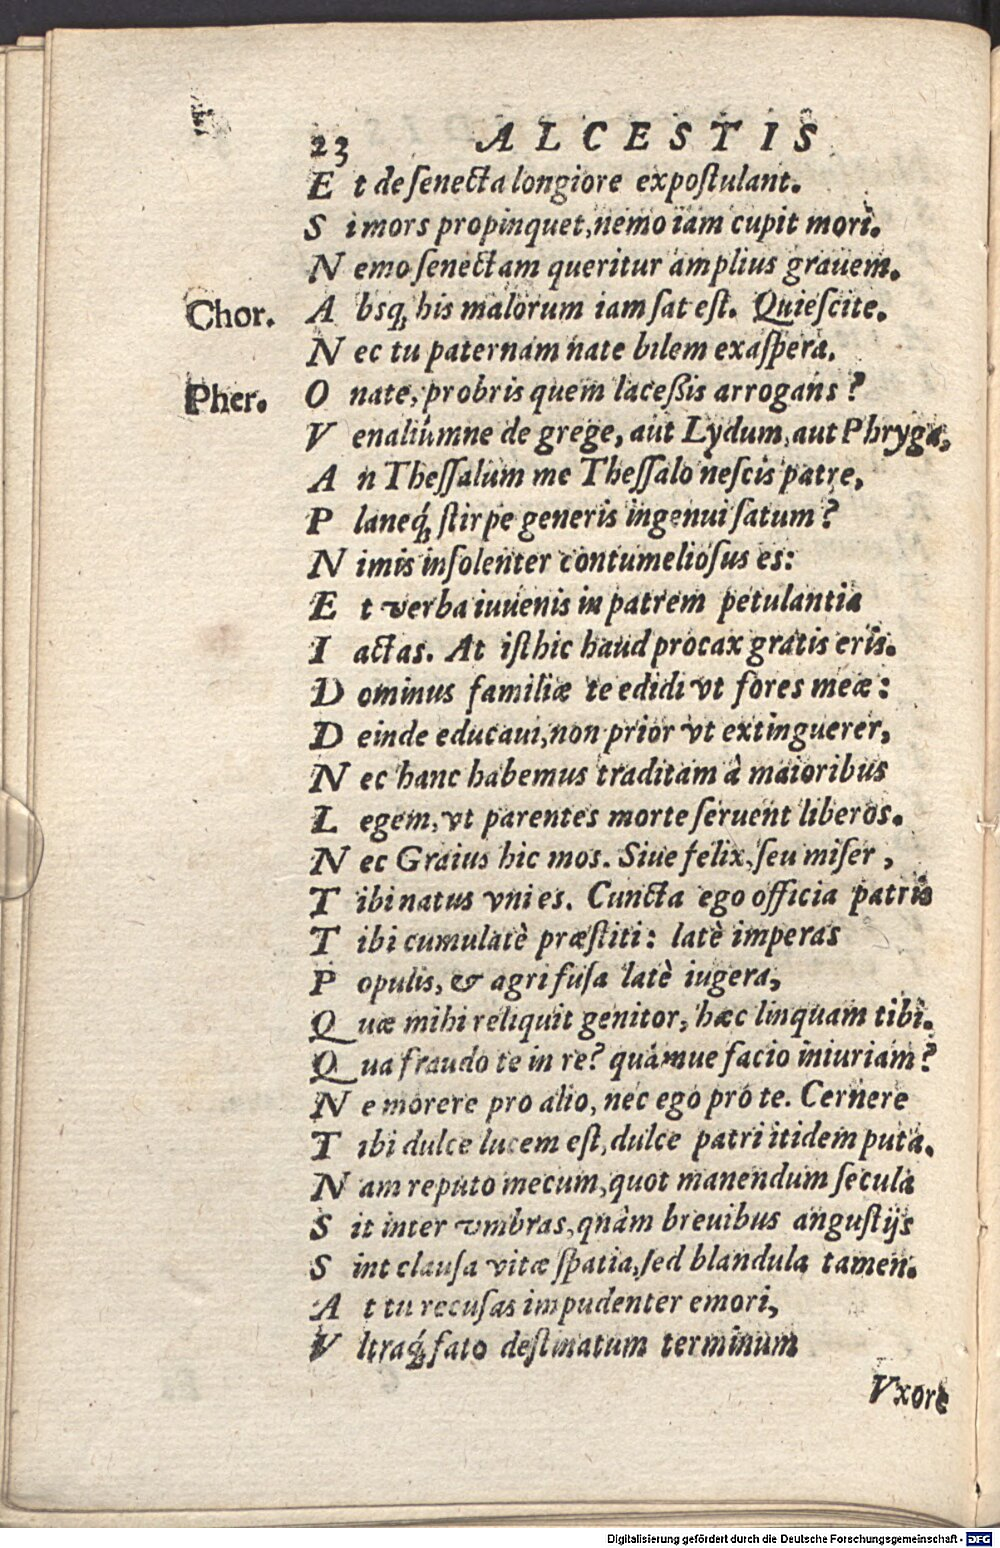 23 ALCESTIS
Et de ſenecta longiore expoſtulant.
Si mors propinquet, nemo iam cupit mori.
Nemo ſenectam queritur amplius grauem.
Chor. Absq; his malorum iam ſat eſt. Quieſcite.
Nec tu paternam nate bilem exaſpera.
Pher. O nate, probris quem laceßis arrogans?
Venaliumne de grege, aut Lydum, aut Phryga,
An Theſſalum me Theſſalo neſcis patre,
Planeq́; ſtirpe generis ingenui ſatum?
Nimis inſolenter contumelioſus es:
Et verba iuuenis in patrem petulantia
Iactas. At iſthic haud procax gratis eris.
Dominus familiæ te edidi vt fores meæ:
Deinde educaui, non prior vt extinguerer,
Nec hanc habemus traditam à maioribus
Legem, vt parentes morte ſeruent liberos.
Nec Graius hic mos. Siue felix, ſeu miſer,
Tibi natus vni es. Cuncta ego officia patris
Tibi cumulatè præſtiti: latè imperas
Populis, & agri fuſa latè iugera,
Quæ mihi reliquit genitor, hæc linquam tibi.
Qua fraudo te in re? quámue facio iniuriam?
Ne morere pro alio, nec ego pro te. Cernere
Tibi dulce lucem eſt, dulce patri itidem puta.
Nam reputo mecum, quot manendum ſecula
Sit inter vmbras, quàm breuibus anguſtijs
Sint clauſa vitæ ſpatia, ſed blandula tamen.
At tu recuſas impudenter emori,
Vltraq́; fato deſtinatum terminum
Vxore
Digitalisierung gefördert durch die Deutsche Forschungsgemeinschaft - DFG